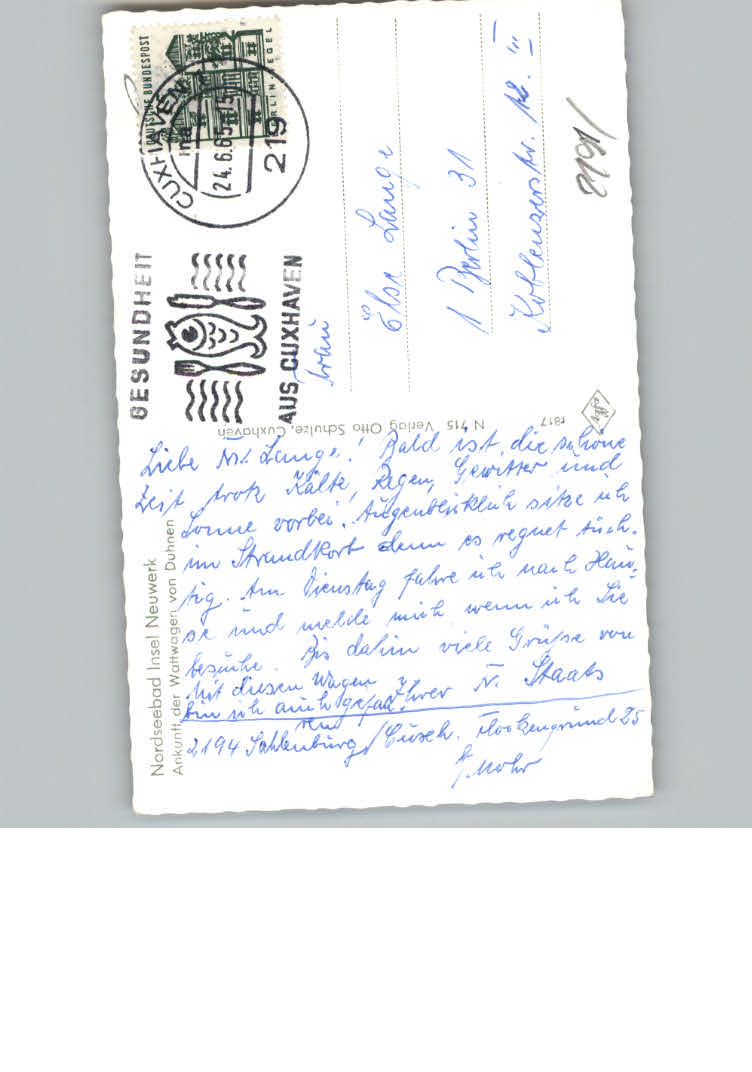 DEUTSCHE BUNDESPOST
BERLIN-TEGEL
CUXHAVEN
24.6.65
219
GESUNDHEIT
AUS CUXHAVEN
Frau
Elsa Lange
1 Berlin 31
Koblenzerstr. 12. III
N 715 Verlag Otto Schulze, Cuxhaven
r817
Nordseebad Insel Neuwerk
Ankunft der Wattwagen von Duhnen
Liebe Fr. Lange! Bald ist die schöne
Zeit trotz Kälte, Regen, Gewitter und
Sonne vorbei. Augenblicklich sitze ich
im Strandkorb denn es regnet tüch-
tig. Am Dienstag fahre ich nach Hau-
se und melde mich wenn ich Sie
besuche. Bis dahin viele Grüße von
Ihrer Fr. Staats
Mit diesen Wagen
bin ich auch gefah-
ren
2194 Sahlenburg/Cuxh. Flockengrund 25
b/Mohr